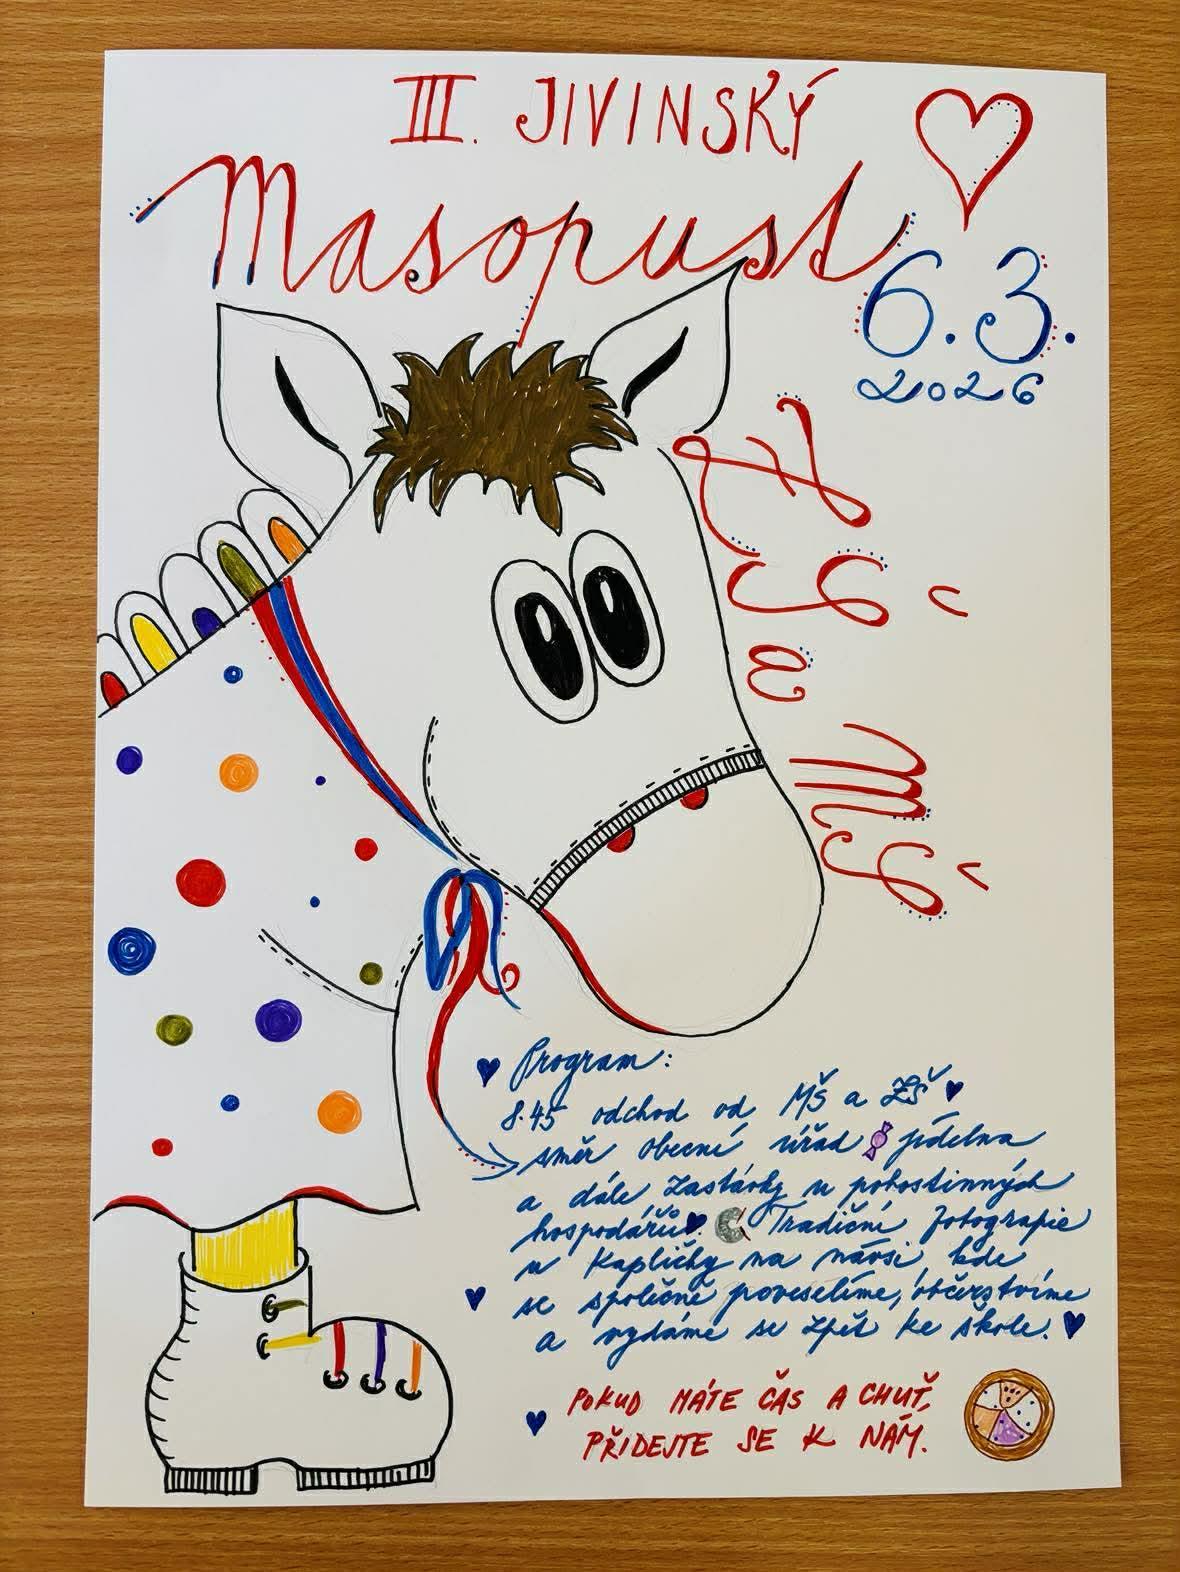 III. JIVINSKÝ
Masopust
6.3.
2026
ZŠ a MŠ
Program:
8.45 odchod od MŠ a ZŠ
směr Obecní úřad jídelna
a dále zastávky u pohostinných
hospodářů. Tradiční fotografie
u Kapličky na návsi kde
se společně poveselíme, občerstvíme
a vydáme se zpět ke škole.
POKUD MÁTE ČAS A CHUŤ,
PŘIDEJTE SE K NÁM.